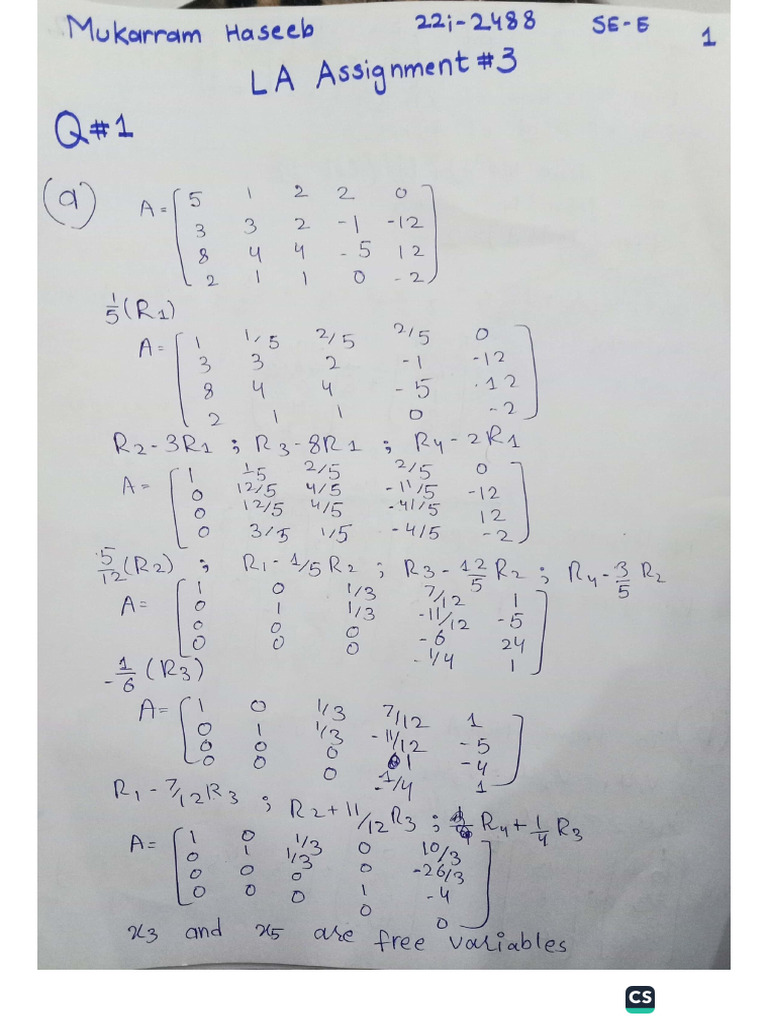 Mukarram Haseeb 22i-2488 SE-E 1
LA Assignment #3
Q#1
(a)
A = [ 5 1 2 2 0
3 3 2 -1 -12
8 4 4 -5 12
2 1 1 0 -2 ]
1/5 (R1)
A = [ 1 1/5 2/5 2/5 0
3 3 2 -1 -12
8 4 4 -5 12
2 1 1 0 -2 ]
R2-3R1 ; R3-8R1 ; R4-2R1
A = [ 1 1/5 2/5 2/5 0
0 12/5 4/5 -11/5 -12
0 12/5 4/5 -41/5 12
0 3/5 1/5 -4/5 -2 ]
5/12 (R2) ; R1-1/5R2 ; R3-12/5 R2 ; R4-3/5 R2
A = [ 1 0 1/3 7/12 1
0 1 1/3 -11/12 -5
0 0 0 -6 24
0 0 0 -1/4 1 ]
-1/6 (R3)
A = [ 1 0 1/3 7/12 1
0 1 1/3 -11/12 -5
0 0 0 1 -4
0 0 0 -1/4 1 ]
R1-7/12R3 ; R2+11/12R3 ; R4+1/4 R3
A = [ 1 0 1/3 0 10/3
0 1 1/3 0 -26/3
0 0 0 1 -4
0 0 0 0 0 ]
x3 and x5 are free variables
CS